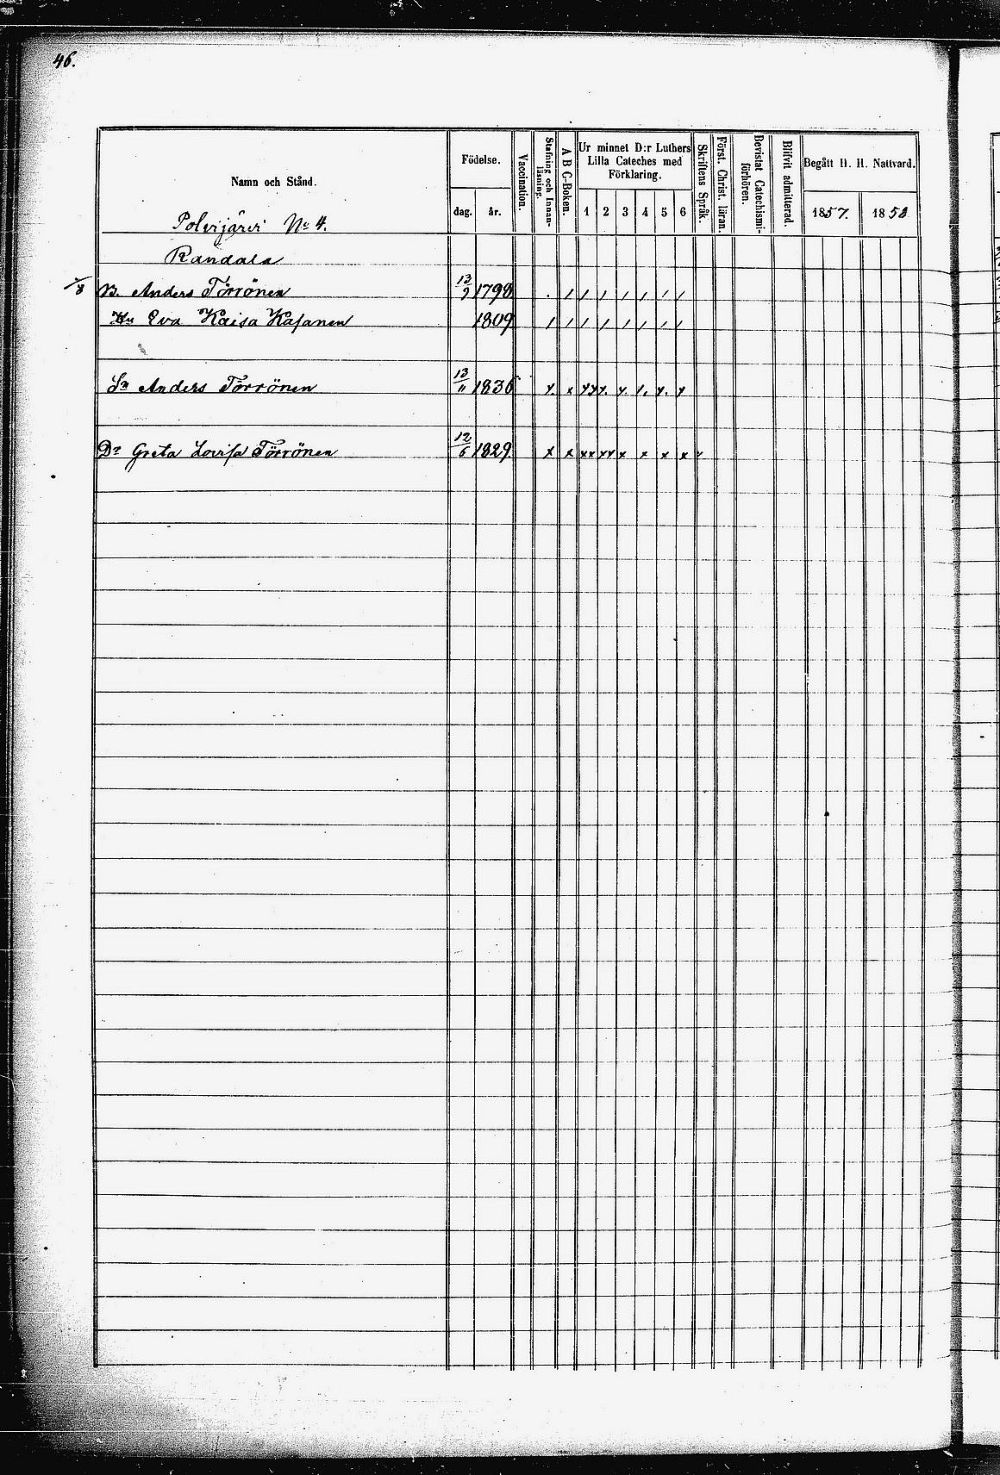 46.
Namn och Stånd.
Födelse.
dag. år.
Vaccination.
Stafning och Innan-läsning.
A B C-Boken.
Ur minnet D:r Luthers Lilla Cateches med Förklaring.
1 2 3 4 5 6
Skriftens Språk.
Först. Christ. läran.
Bevistat Catechismi-förhören.
Blifvit admitterad.
Begått H. H. Nattvard.
1857. 1858
Polvijärvi No 4.
Randala
B. Anders Törrönen 13/9 1798
Hu Eva Kaisa Kasanen 1809
Sn Anders Törrönen 13/11 1836
Dr Greta Lovisa Törrönen 12/6 1829